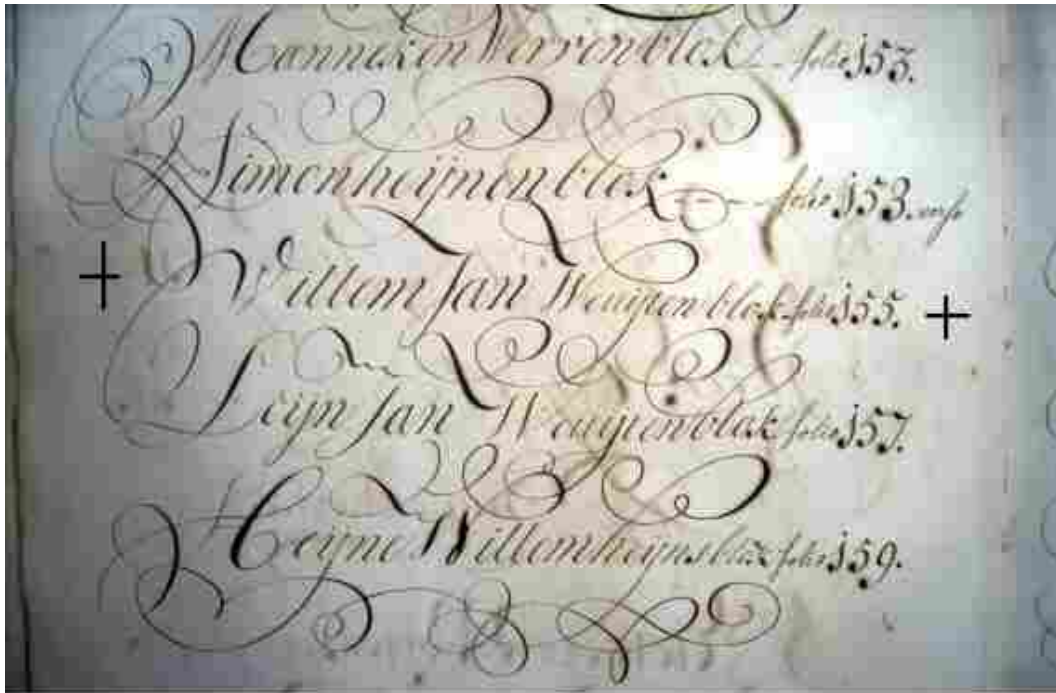 Manneken Werrenblok folio 153.
Simonheijnenblok folio 153. verso
Willem Jan Weuijtenblok folio 155.
Leijn Jan Weuijtenblok folio 157.
Heijne Willemheijnsblok folio 159.